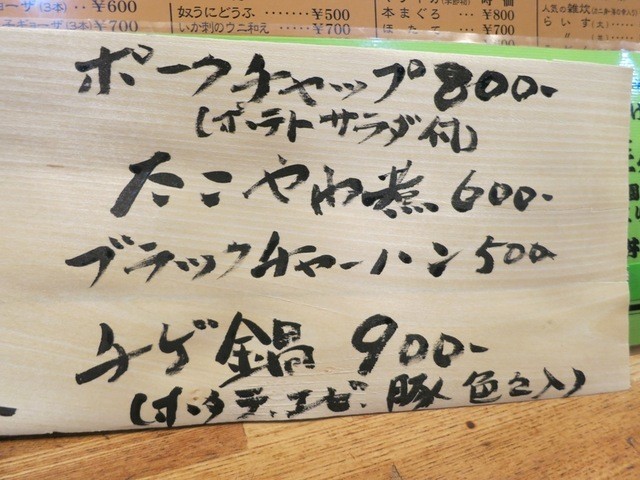 ギョーザ(3本) ¥600
子ギョーザ(3本) ¥700
奴うにどうふ ¥500
いか刺のウニ和え ¥700
時価
本まぐろ ¥800
ほたて ¥700
人気の雑炊
らいす(大)
ポークチャップ 800-
(ポテトサラダ付)
たこやわ煮 600-
ブラックチャーハン 500
チゲ鍋 900-
(ホタテ、エビ、豚 色々入)